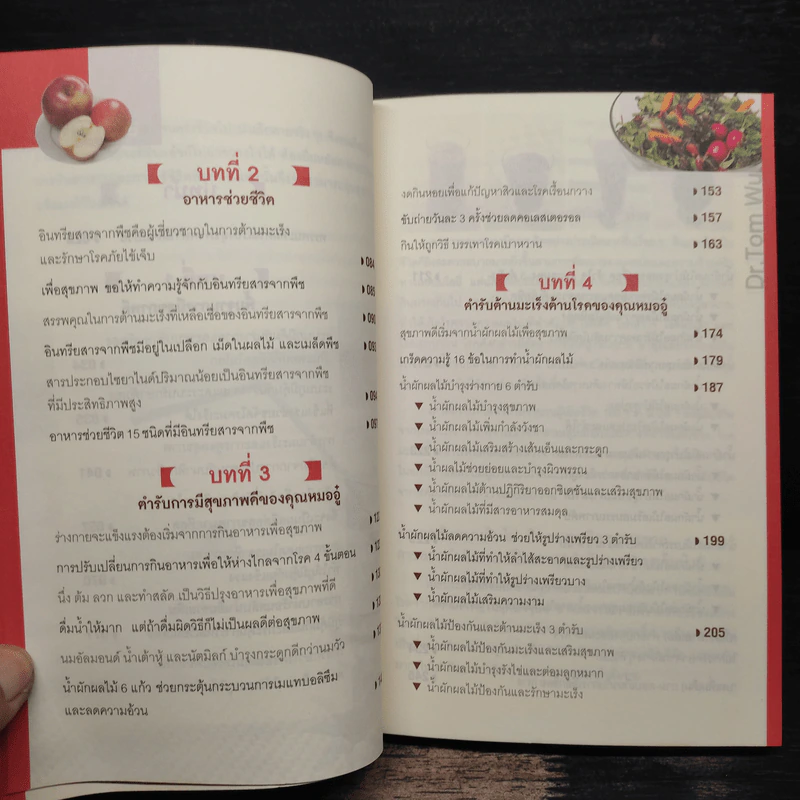 บทที่ 2
อาหารช่วยชีวิต
อินทรียสารจากพืชคือผู้เชี่ยวชาญในการต้านมะเร็ง
และรักษาโรคภัยไข้เจ็บ 084
เพื่อสุขภาพ ขอให้ทำความรู้จักกับอินทรียสารจากพืช 085
สรรพคุณในการต้านมะเร็งที่เหลือเชื่อของอินทรียสารจากพืช 090
อินทรียสารจากพืชมีอยู่ในเปลือก เม็ดในผลไม้ และเมล็ดพืช
สารประกอบไซยาไนด์ปริมาณน้อยเป็นอินทรียสารจากพืช
ที่มีประสิทธิภาพสูง
อาหารช่วยชีวิต 15 ชนิดที่มีอินทรียสารจากพืช
บทที่ 3
ตำรับการมีสุขภาพดีของคุณหมออู๋
ร่างกายจะแข็งแรงต้องเริ่มจากการกินอาหารเพื่อสุขภาพ
การปรับเปลี่ยนการกินอาหารเพื่อให้ห่างไกลจากโรค 4 ขั้นตอน
นึ่ง ต้ม ลวก และทำสลัด เป็นวิธีปรุงอาหารเพื่อสุขภาพที่ดี
ดื่มน้ำให้มาก แต่ถ้าดื่มผิดวิธีก็ไม่เป็นผลดีต่อสุขภาพ
นมอัลมอนด์ น้ำเต้าหู้ และนัตมิลก์ บำรุงกระดูกดีกว่านมวัว
น้ำผักผลไม้ 6 แก้ว ช่วยกระตุ้นกระบวนการเมแทบอลิซึม
และลดความอ้วน
งดกินหอยเพื่อแก้ปัญหาสิวและโรคเรื้อนกวาง 153
ขับถ่ายวันละ 3 ครั้งช่วยลดคอเลสเตอรอล 157
กินให้ถูกวิธี บรรเทาโรคเบาหวาน 163
บทที่ 4
ตำรับต้านมะเร็งต้านโรคของคุณหมออู๋
สุขภาพดีเริ่มจากน้ำผักผลไม้เพื่อสุขภาพ 174
เกร็ดความรู้ 16 ข้อในการทำน้ำผักผลไม้ 179
น้ำผักผลไม้บำรุงร่างกาย 6 ตำรับ 187
▼ น้ำผักผลไม้บำรุงสุขภาพ
▼ น้ำผักผลไม้เพิ่มกำลังวังชา
▼ น้ำผักผลไม้เสริมสร้างเส้นเอ็นและกระดูก
▼ น้ำผักผลไม้ช่วยย่อยและบำรุงผิวพรรณ
▼ น้ำผักผลไม้ต้านปฏิกิริยาออกซิเดชันและเสริมสุขภาพ
▼ น้ำผักผลไม้ที่มีสารอาหารสมดุล
น้ำผักผลไม้ลดความอ้วน ช่วยให้รูปร่างเพรียว 3 ตำรับ 199
▼ น้ำผักผลไม้ที่ทำให้ลำไส้สะอาดและรูปร่างเพรียว
▼ น้ำผักผลไม้ที่ทำให้รูปร่างเพรียวบาง
▼ น้ำผักผลไม้เสริมความงาม
น้ำผักผลไม้ป้องกันและต้านมะเร็ง 3 ตำรับ 205
▼ น้ำผักผลไม้ป้องกันมะเร็งและเสริมสุขภาพ
▼ น้ำผักผลไม้บำรุงรังไข่และต่อมลูกหมาก
▼ น้ำผักผลไม้ป้องกันและรักษามะเร็ง
Dr.Tom Wu